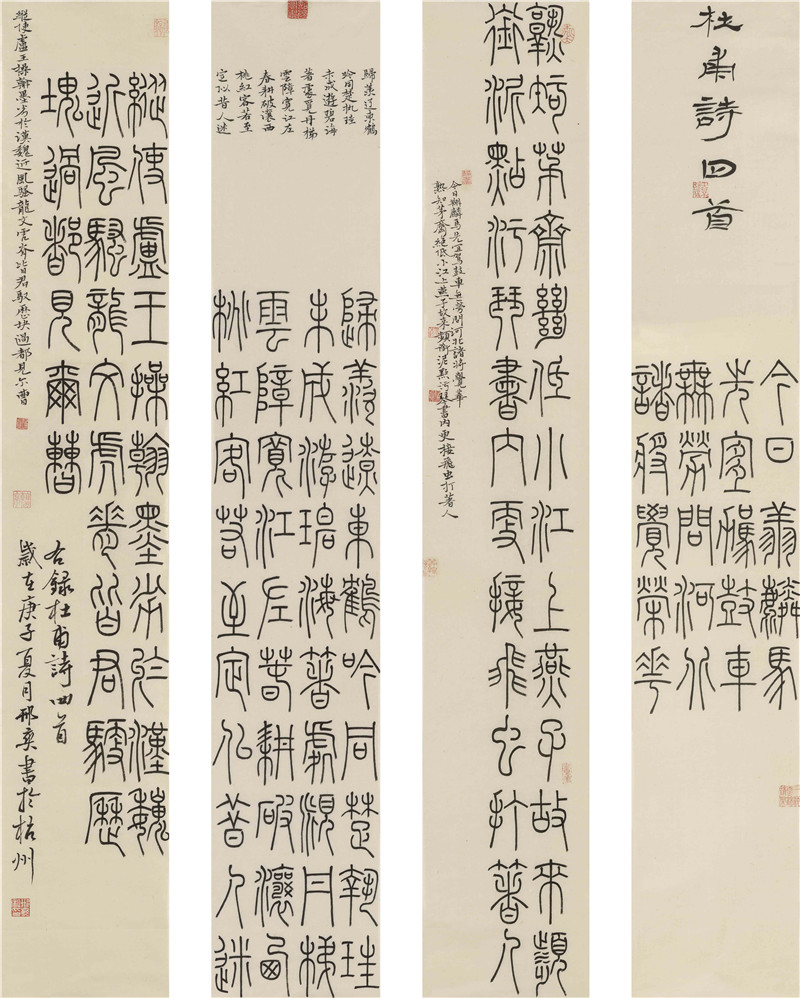 杜甫詩四首
今日翔麟馬
先宜駕鼓車
無勞問河北
諸將覺榮華
熟知茅齋絕低小江上燕子故來頻
銜泥點污琴書內更接飛虫打著人
今日翔麟馬先宜駕鼓車無勞問河北諸將覺榮華
熟知茅齋絕低小江上燕子故來頻銜泥點污琴書內更接飛虫打著人
歸羨遼東鶴
吟同楚執珪
未成遊碧海
著處覓丹梯
雲障寬江左
春耕破瀼西
桃紅客若至
定似昔人迷
歸羨遼東鶴吟同楚執珪
未成游碧海著處覓丹梯
雲障寬江左春耕破瀼西
桃紅客若至定似昔人迷
縱使盧王操翰墨劣於漢魏
近風騷龍文虎脊皆君馭歷
塊過都見爾曹
縱使盧王操翰墨劣於漢魏近風騷龍文虎脊皆君馭歷塊過都見尔曹
右錄杜甫詩四首
歲在庚子夏月邢奕書於栝州